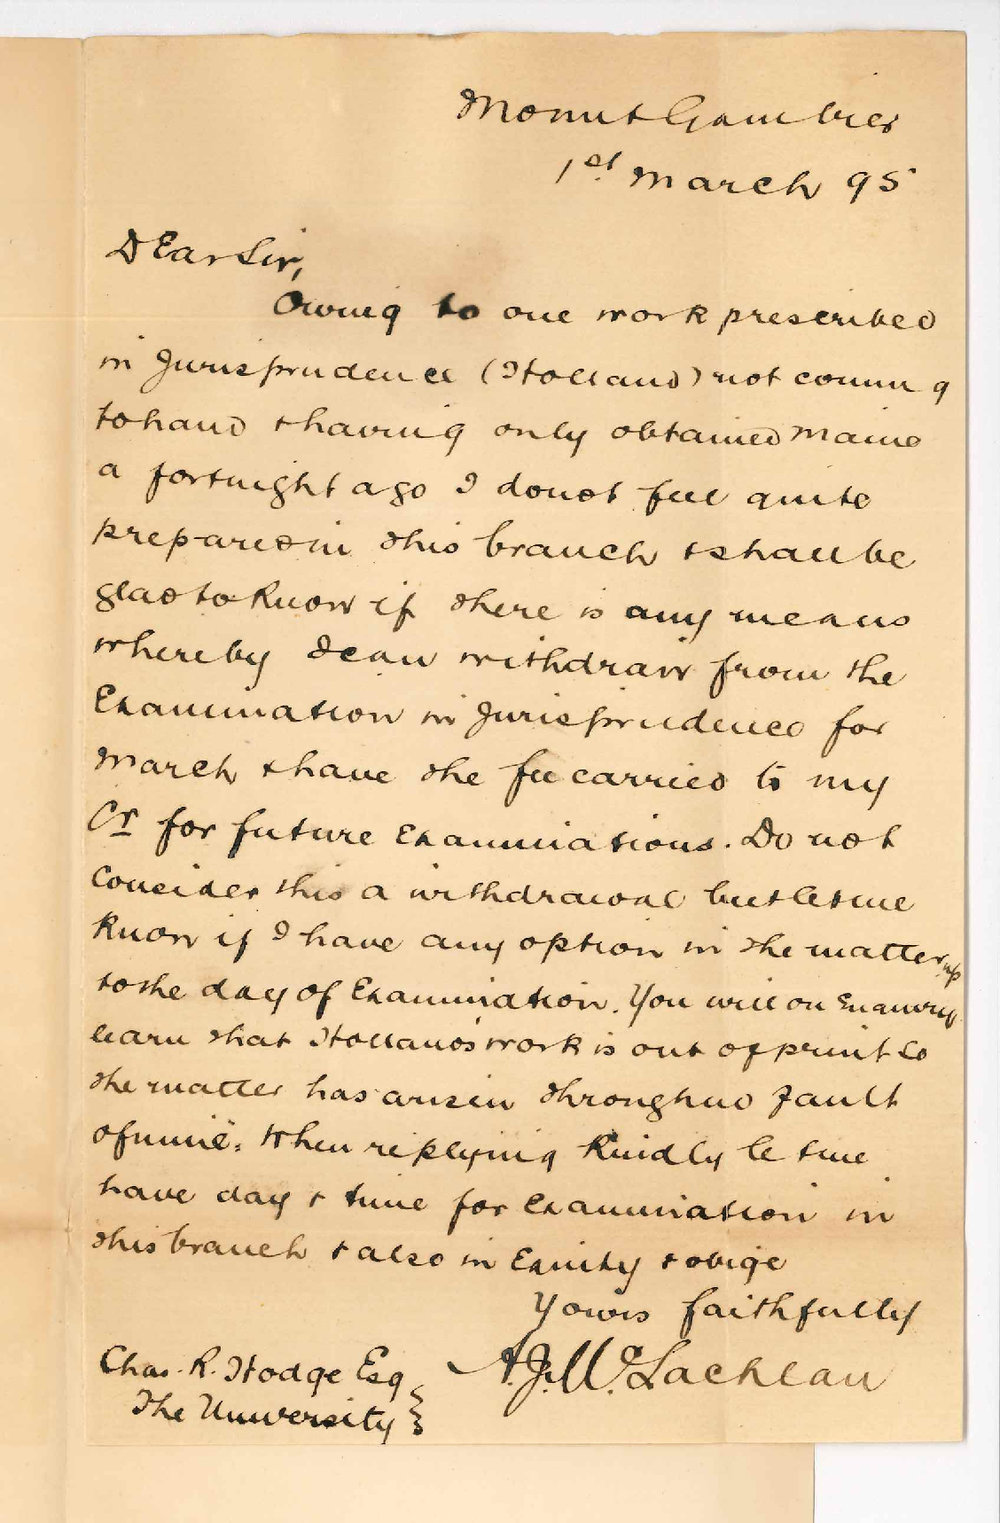 Mount Gambier
1st March 95
Dear Sir,
Owing to one work prescribed
in Jurisprudence (Holland) not coming
to hand & having only obtained Maine
a fortnight ago I do not feel quite
prepared in this branch & shall be
glad to know if there is any means
whereby I can withdraw from the
Examination in Jurisprudence for
March & have the fee carried to my
Cr for future Examinations. Do not
consider this a withdrawal but let me
know if I have any option in the matter up
to the day of Examination. You will on Enquiry
learn that Holland's work is out of print so
the matter has arisen through no fault
of mine. When replying kindly let me
have day & time for Examination in
this branch & also in Equity & oblige
Yours faithfully
A. J. McLachlan
Chas. R. Hodge Esq
The University